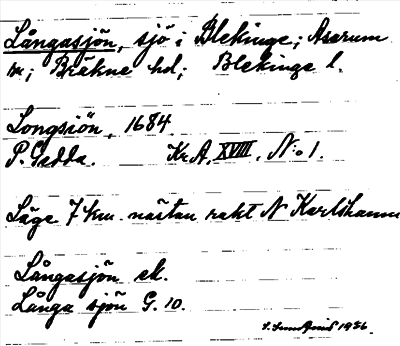 Långasjön, sjö i Blekinge; Asarum
sn; Bräkne hd; Blekinge l.
Longsiön, 1684
P. Gedda. Kr.A. XVIII, N:o 1.
Läge 7 km. nästan rakt N Karlshamn
Långasjön ek.
Långa sjön G. 10.
1926